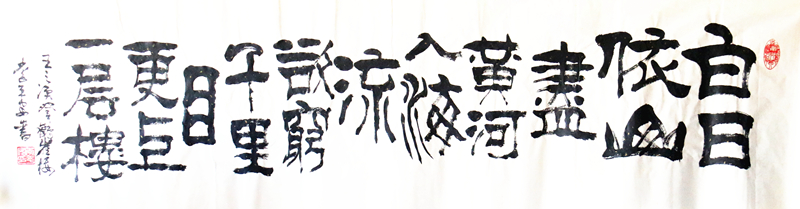 白日
依山
盡
黄河
入海
流
欲窮
千里
目
更
一层樓
王之涣登鹳雀楼
書